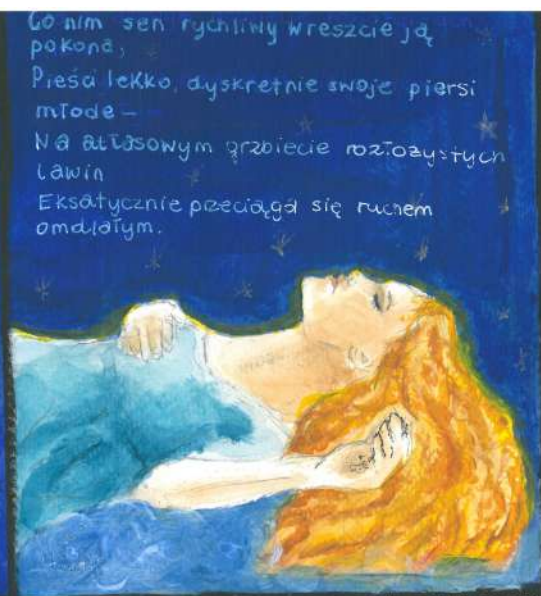 Co nim sen rychliwy wreszcie ją
pokona,
Pieści lekko, dyskretnie swoje piersi
młode –
Na atłasowym grzbiecie rozłożystych
lawin
Eksatycznie przeciąga się ruchem
omdlałym.